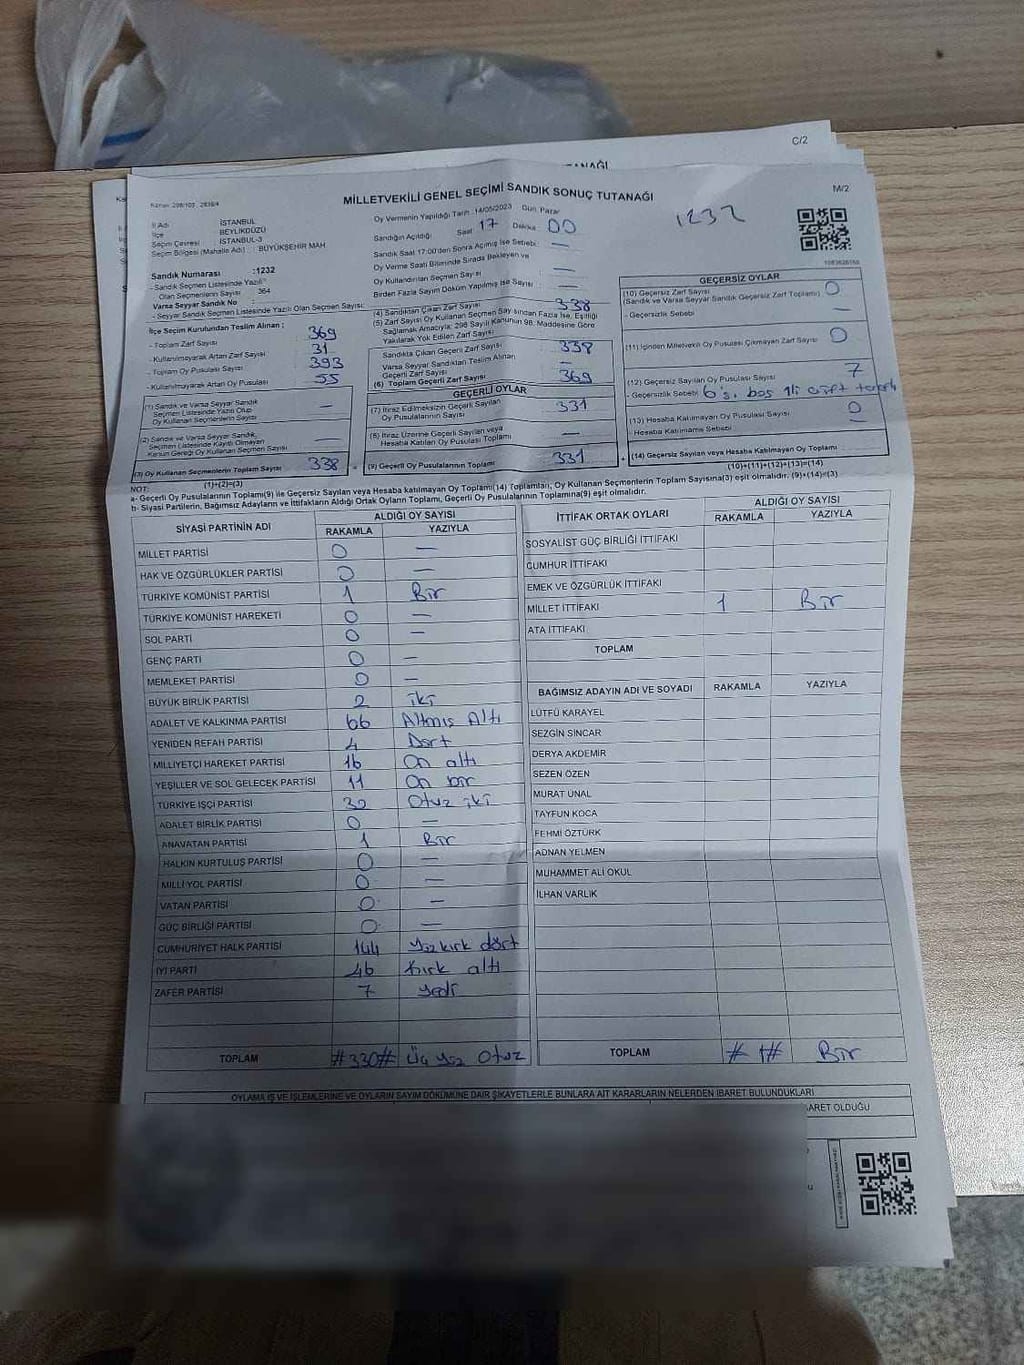 C/2
MİLLETVEKİLİ GENEL SEÇİMİ SANDIK SONUÇ TUTANAĞI
M/2
1232
İl Adı İSTANBUL
İlçe BEYLİKDÜZÜ
Seçim Çevresi İSTANBUL-3
Seçim Bölgesi (Mahalle Adı) : BÜYÜKŞEHİR MAH
Sandık Numarası :1232
- Sandık Seçmen Listesinde Yazılı
Olan Seçmenlerin Sayısı : 364
Varsa Seyyar Sandık No
- Seyyar Sandık Seçmen Listesinde Yazılı Olan Seçmen Sayısı:
İlçe Seçim Kurulundan Teslim Alınan ;
- Toplam Zarf Sayısı 369
- Kullanılmayarak Artan Zarf Sayısı 31
- Toplam Oy Pusulası Sayısı 393
- Kullanılmayarak Artan Oy Pusulası 55
(1) Sandık ve Varsa Seyyar Sandık
Seçmen Listesinde Yazılı Olup
Oy Kullanan Seçmenlerin Sayısı —
(2) Sandık ve Varsa Seyyar Sandık,
Seçmen Listesinde Kayıtlı Olmayan
Kanun Gereği Oy Kullanan Seçmen Sayısı —
(3) Oy Kullanan Seçmenlerin Toplam Sayısı 338
(1)+(2)=(3)
Oy Vermenin Yapıldığı Tarih : 14/05/2023 Gün: Pazar
Sandığın Açıldığı Saat 17 Dakika 00
Sandık Saat 17:00'den Sonra Açılmış İse Sebebi: —
Oy Verme Saati Bitiminde Sırada Bekleyen ve
Oy Kullandırılan Seçmen Sayısı —
Birden Fazla Sayım Döküm Yapılmış İse Sayısı : —
(4) Sandıktan Çıkan Zarf Sayısı 338
(5) Zarf Sayısı Oy Kullanan Seçmen Sayısından Fazla İse, Eşitliği
Sağlamak Amacıyla; 298 Sayılı Kanunun 98. Maddesine Göre
Yakılarak Yok Edilen Zarf Sayısı
Sandıkta Çıkan Geçerli Zarf Sayısı 338
Varsa Seyyar Sandıktan Teslim Alınan
Geçerli Zarf Sayısı —
(6) Toplam Geçerli Zarf Sayısı 369
GEÇERLİ OYLAR
(7) İtiraz Edilmeksizin Geçerli Sayılan
Oy Pusulalarının Sayısı 331
(8) İtiraz Üzerine Geçerli Sayılan veya
Hesaba Katılan Oy Pusulası Toplamı —
(9) Geçerli Oy Pusulalarının Toplamı 331
GEÇERSİZ OYLAR
(10) Geçersiz Zarf Sayısı 0
(Sandık ve Varsa Seyyar Sandık Geçersiz Zarf Toplamı)
- Geçersizlik Sebebi —
(11) İçinden Milletvekili Oy Pusulası Çıkmayan Zarf Sayısı 0
(12) Geçersiz Sayılan Oy Pusulası Sayısı 7
- Geçersizlik Sebebi 6'sı boş 1'i çift
(13) Hesaba Katılmayan Oy Pusulası Sayısı 0
Hesaba Katılmama Sebebi —
(14) Geçersiz Sayılan veya Hesaba Katılmayan Oy Toplamı
(10)+(11)+(12)+(13)=(14)
NOT:
a- Geçerli Oy Pusulalarının Toplamı(9) ile Geçersiz Sayılan veya Hesaba katılmayan Oy Toplamı(14) Toplamları, Oy Kullanan Seçmenlerin Toplam Sayısına(3) eşit olmalıdır. (9)+(14)=(3)
b- Siyasi Partilerin, Bağımsız Adayların ve İttifakların Aldığı Ortak Oyların Toplamı, Geçerli Oy Pusulalarının Toplamına(9) eşit olmalıdır.
SİYASİ PARTİNİN ADI ALDIĞI OY SAYISI
RAKAMLA YAZIYLA
MİLLET PARTİSİ 0 —
HAK VE ÖZGÜRLÜKLER PARTİSİ 0 —
TÜRKİYE KOMÜNİST PARTİSİ 1 Bir
TÜRKİYE KOMÜNİST HAREKETİ 0 —
SOL PARTİ 0 —
GENÇ PARTİ 0 —
MEMLEKET PARTİSİ 0 —
BÜYÜK BİRLİK PARTİSİ 2 iki
ADALET VE KALKINMA PARTİSİ 66 Altmış Altı
YENİDEN REFAH PARTİSİ 4 Dört
MİLLİYETÇİ HAREKET PARTİSİ 16 On altı
YEŞİLLER VE SOL GELECEK PARTİSİ 11 On bir
TÜRKİYE İŞÇİ PARTİSİ 32 Otuz iki
ADALET BİRLİK PARTİSİ 0 —
ANAVATAN PARTİSİ 1 Bir
HALKIN KURTULUŞ PARTİSİ 0 —
MİLLİ YOL PARTİSİ 0 —
VATAN PARTİSİ 0 —
GÜÇ BİRLİĞİ PARTİSİ 0 —
CUMHURİYET HALK PARTİSİ 144 Yüzkırk dört
İYİ PARTİ 46 Kırk altı
ZAFER PARTİSİ 7 Yedi
TOPLAM #330# Üç yüz Otuz
İTTİFAK ORTAK OYLARI ALDIĞI OY SAYISI
RAKAMLA YAZIYLA
SOSYALİST GÜÇ BİRLİĞİ İTTİFAKI
CUMHUR İTTİFAKI
EMEK VE ÖZGÜRLÜK İTTİFAKI
MİLLET İTTİFAKI 1 Bir
ATA İTTİFAKI
TOPLAM
BAĞIMSIZ ADAYIN ADI VE SOYADI RAKAMLA YAZIYLA
LÜTFÜ KARAYEL
SEZGİN SİNCAR
DERYA AKDEMİR
SEZEN ÖZEN
MURAT ÜNAL
TAYFUN KOCA
FEHMİ ÖZTÜRK
ADNAN YELMEN
MUHAMMET ALİ OKUL
İLHAN VARLIK
TOPLAM #1# Bir
OYLAMA İŞ VE İŞLEMLERİNE VE OYLARIN SAYIM DÖKÜMÜNE DAİR ŞİKAYETLERLE BUNLARA AİT KARARLARIN NELERDEN İBARET BULUNDUKLARI
OLDUĞU